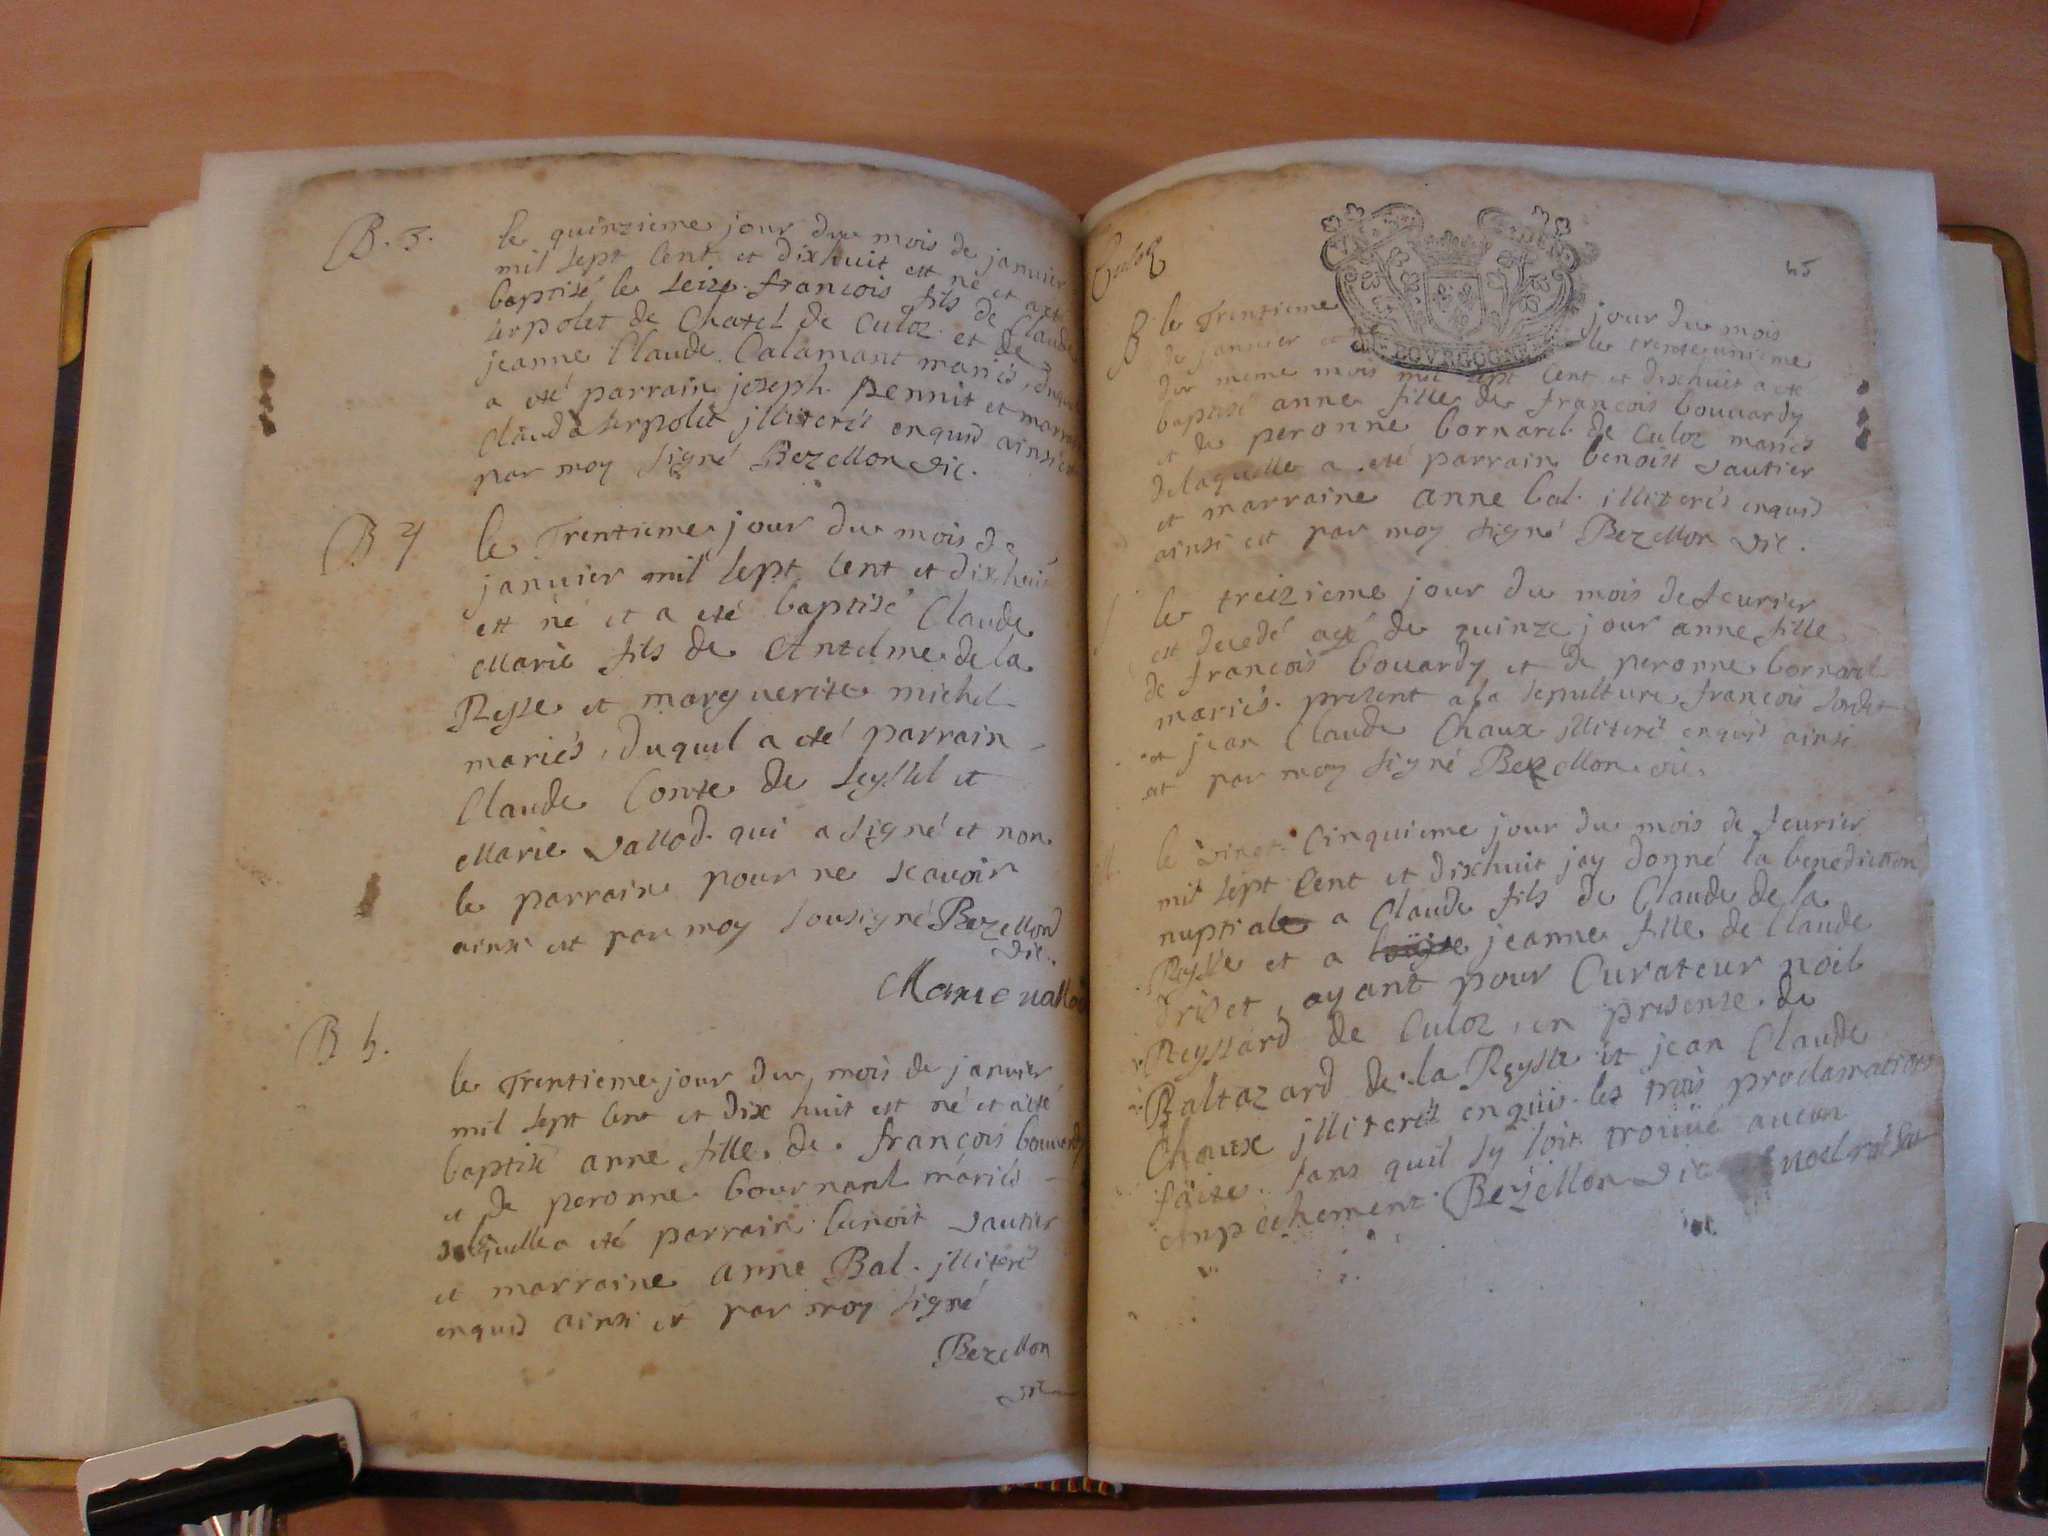 B. 3.
le quinzieme jour du mois de janvier
mil sept cent et dixhuit est né et a eté
baptisé le seize francois fils de Claude
serpolet de Chatel de Culoz et de
jeanne Claude Calamant mariés, duquel
a eté parrain joseph pennit et marraine
Clauda serpolet jlliterés enquis ainsi est
par moy signé Bezellon vic.
B 4
le Trentieme jour du mois de
janvier mil sept cent et dixhuit
est né et a eté baptisé Claude
Marie fils de Antelme de la
Reysse et marguerite michel
mariés, duquel a eté parrain
Claude Conte de seyssel et
Marie vallod qui a signé et non
le parrain pour ne scavoir
ainsi est par moy sousigné Bezellon
vic.
Marie vallod
B 5.
le Trentieme jour du mois de janvier
mil sept cent et dix huit est né et a eté
baptisé anne fille de francois bouuardy
et de peronne bournard mariés
delaquelle a eté parrain benoit vautier
et marraine anne Bal jlliterés
enquis ainsi est par moy signé
Bezellon
vic
Culoz
45
BOVRGOGNE
B le Trentieme jour du mois
de janvier et le trente unieme
du meme mois mil sept cent et dixhuit a eté
baptisé anne fille de francois bouuardy
et de peronne bornard de Culoz mariés
delaquelle a eté parrain benoist vautier
et marraine anne bal illiterés enquis
ainsi est par moy signé Bezellon vic.
le treizieme jour du mois de feurier
est decedé agé de quinze jour anne fille
de francois bouardy et de peronne bornard
mariés. present a la sepulture francois sordet
et jean Claude Chaux jlliterés enquis ainsi
est par moy signé Bezellon vic.
M. le vingt Cinquieme jour du mois de feurier
mil sept Cent et dixhuit jay donné la benediction
nuptiale a Claude fils de Claude de la
Reysse et a jeanne fille de Claude
friset, ayant pour Curateur noel
Reyssard de Culoz, en presence de
Baltazard de la Reysse et jean Claude
Chaux jlliterés enquis les trois proclamations
faites sans quil sy soit trouué aucun
empechement Bezellon vic noel